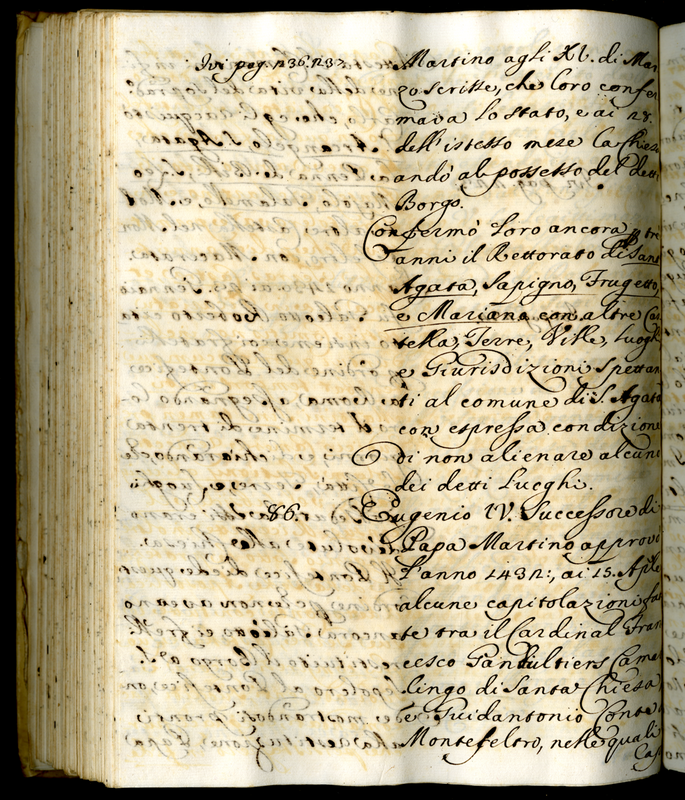 Ivi pag. 236. 237
Martino agli XV. di Mar
zo scritte, che loro confer
mava lo stato, e ai 28.
dell'istesso mese la Chiesa
andò al possesso del detto
Borgo.
Confermò loro ancora p tre
anni il Rettorato di Sant
Agata, Sapigno, Frugetto,
e Mariana con altre Cas
tella, Terre, Ville, Luoghi
e Giurisdizioni spettan
ti al comune di S. Agata
con espressa condizione
di non alienare alcuno
dei detti Luoghi.
86. Eugenio IV. Successore di
Papa Martino approvò
l'anno 1432:, ai 15. Aple
alcune capitolazioni fat
te tra il Cardinal Fran
cesco Camer
lingo di Santa Chiesa
e Guidantonio Conte
Montefeltro, nelle quali